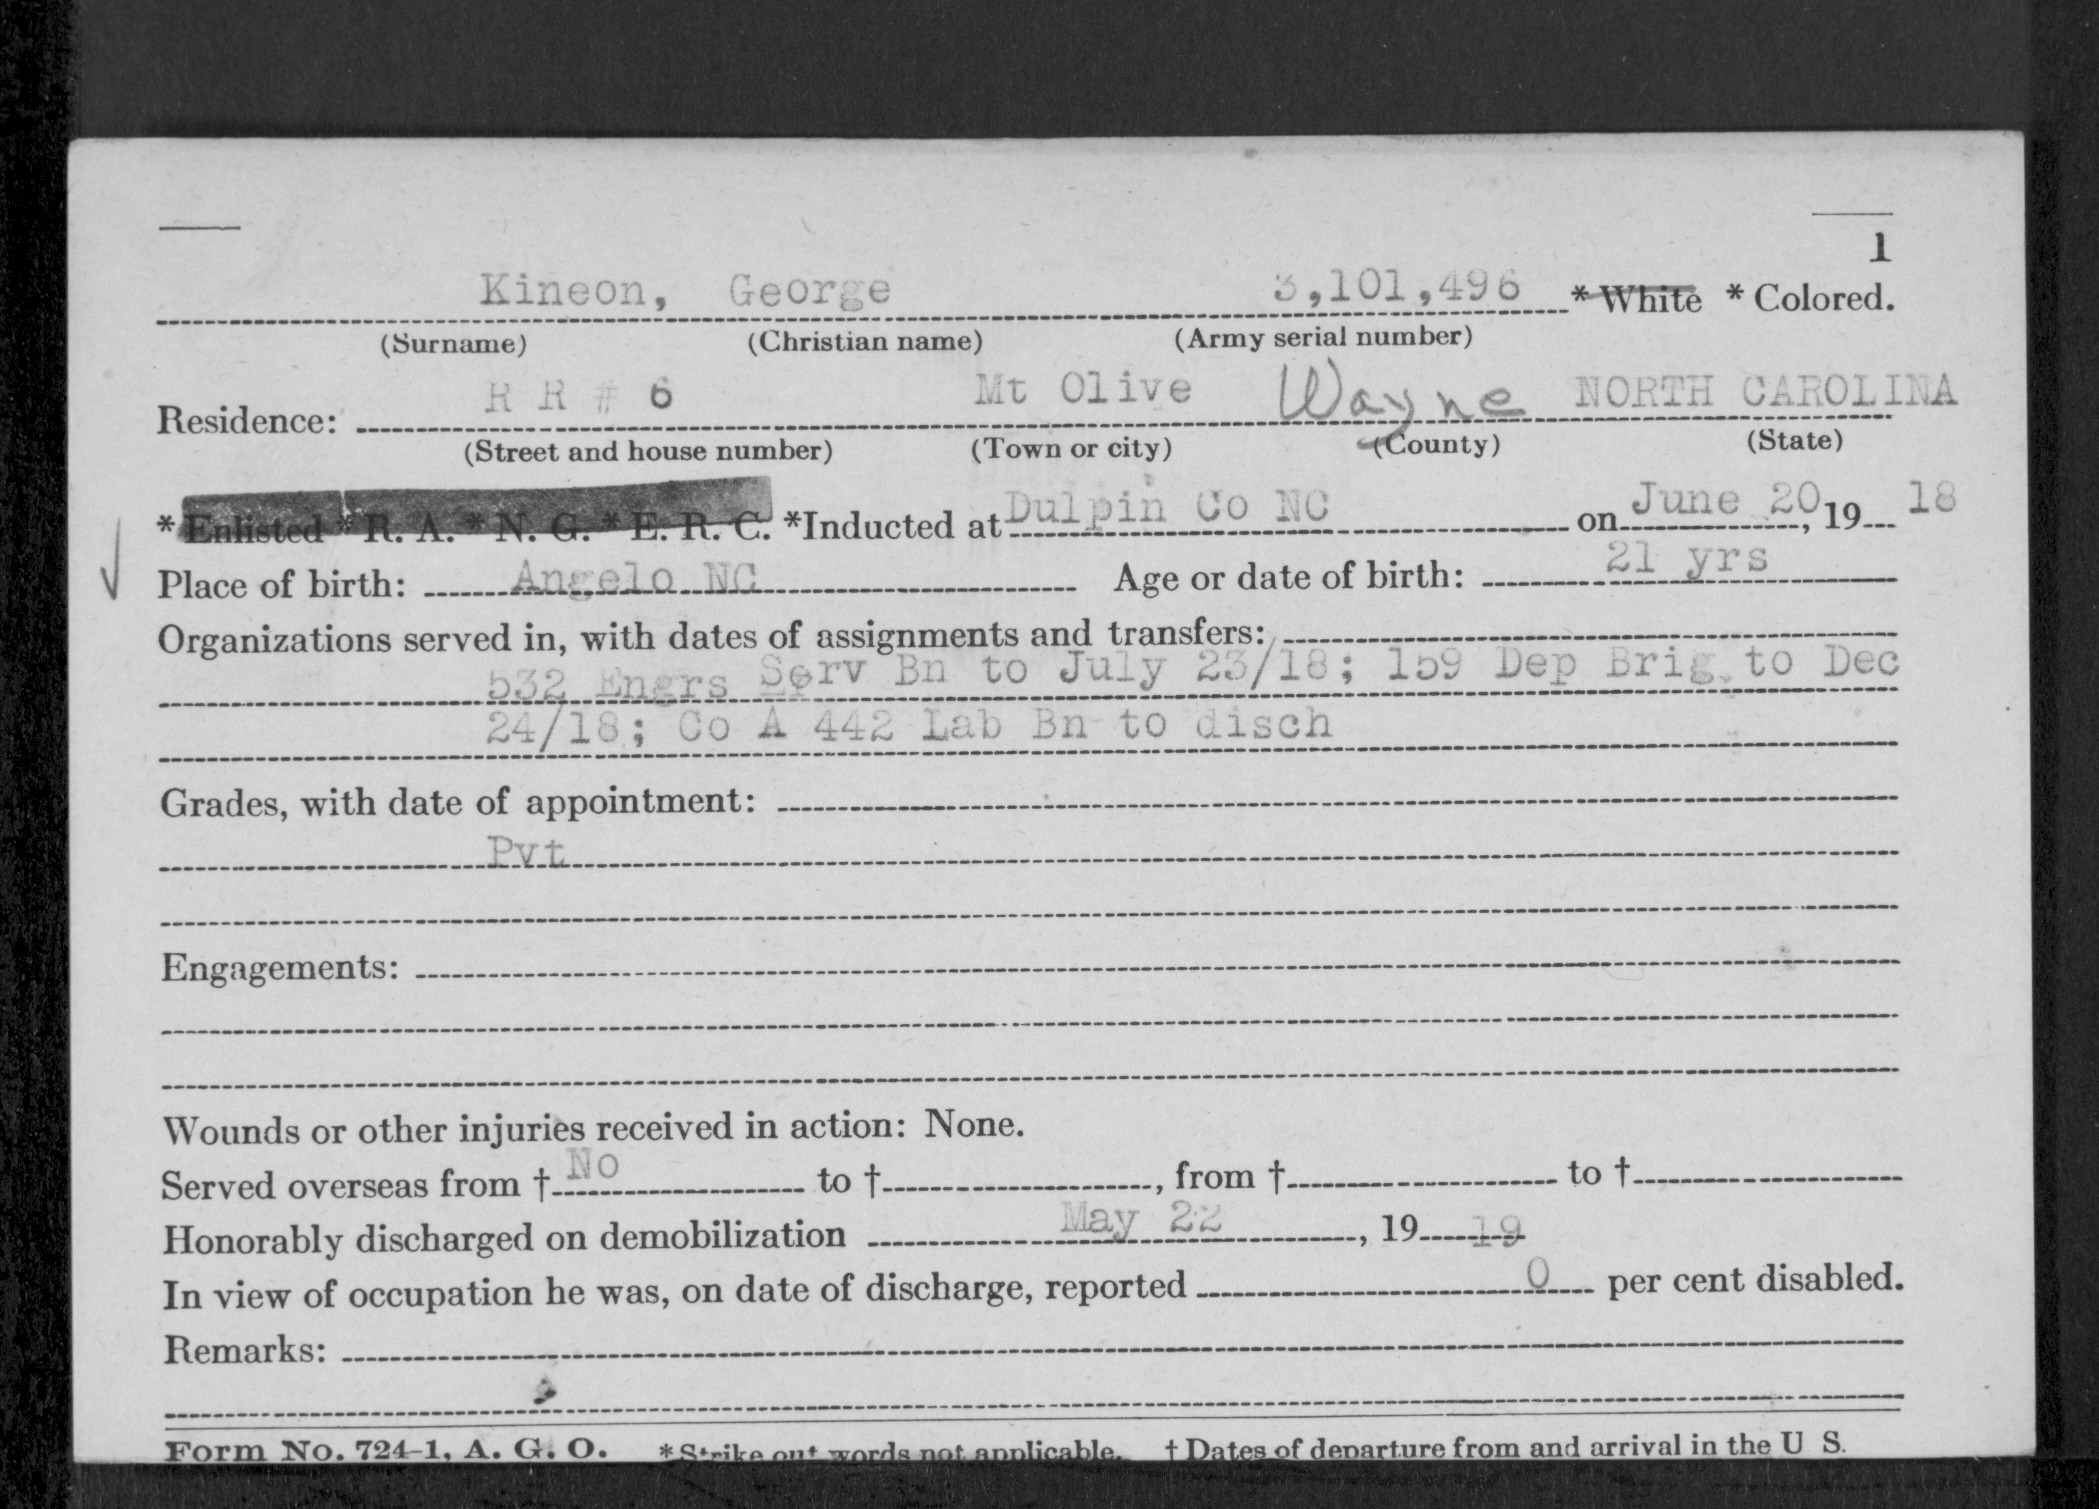 1
Kineon, George 3,101,496 *White *Colored.
(Surname) (Christian name) (Army serial number)
Residence: R R # 6 Mt Olive Wayne NORTH CAROLINA
(Street and house number) (Town or city) (County) (State)
*Enlisted *R. A. *N. G. *E. R. C. *Inducted at Dulpin Co NC on June 20, 19 18
Place of birth: Angelo NC Age or date of birth: 21 yrs
Organizations served in, with dates of assignments and transfers:
532 Engrs Serv Bn to July 23/18; 159 Dep Brig. to Dec
24/18; Co A 442 Lab Bn to disch
Grades, with date of appointment:
Pvt
Engagements:
Wounds or other injuries received in action: None.
Served overseas from † No to †, from † to †
Honorably discharged on demobilization May 22, 19 19
In view of occupation he was, on date of discharge, reported 0 per cent disabled.
Remarks:
Form No. 724-1, A. G. O. *Strike out words not applicable. †Dates of departure from and arrival in the U S.